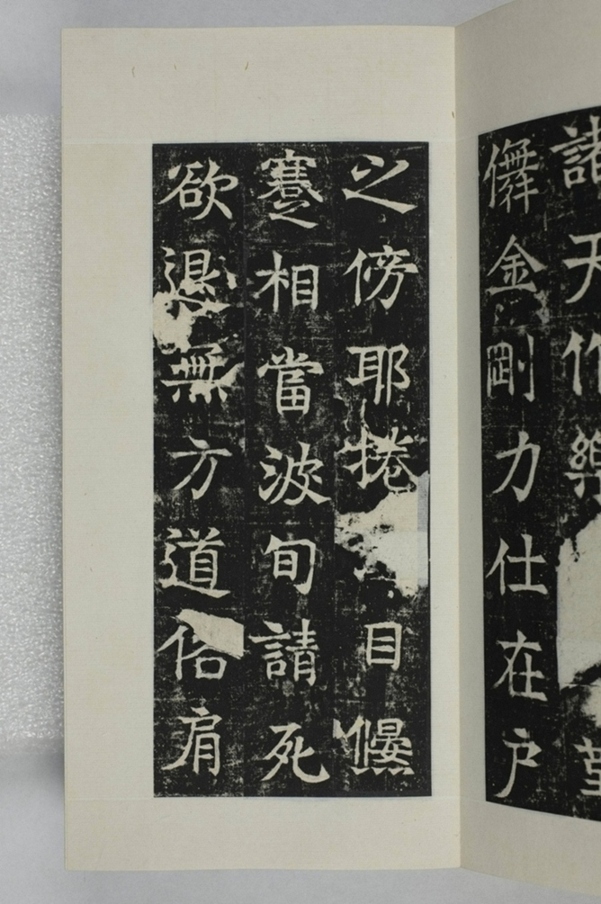 諸天作樂
儛金剛力仕在户
之傍耶捲目
蹇相當波旬請死
欲退無方道俗肩